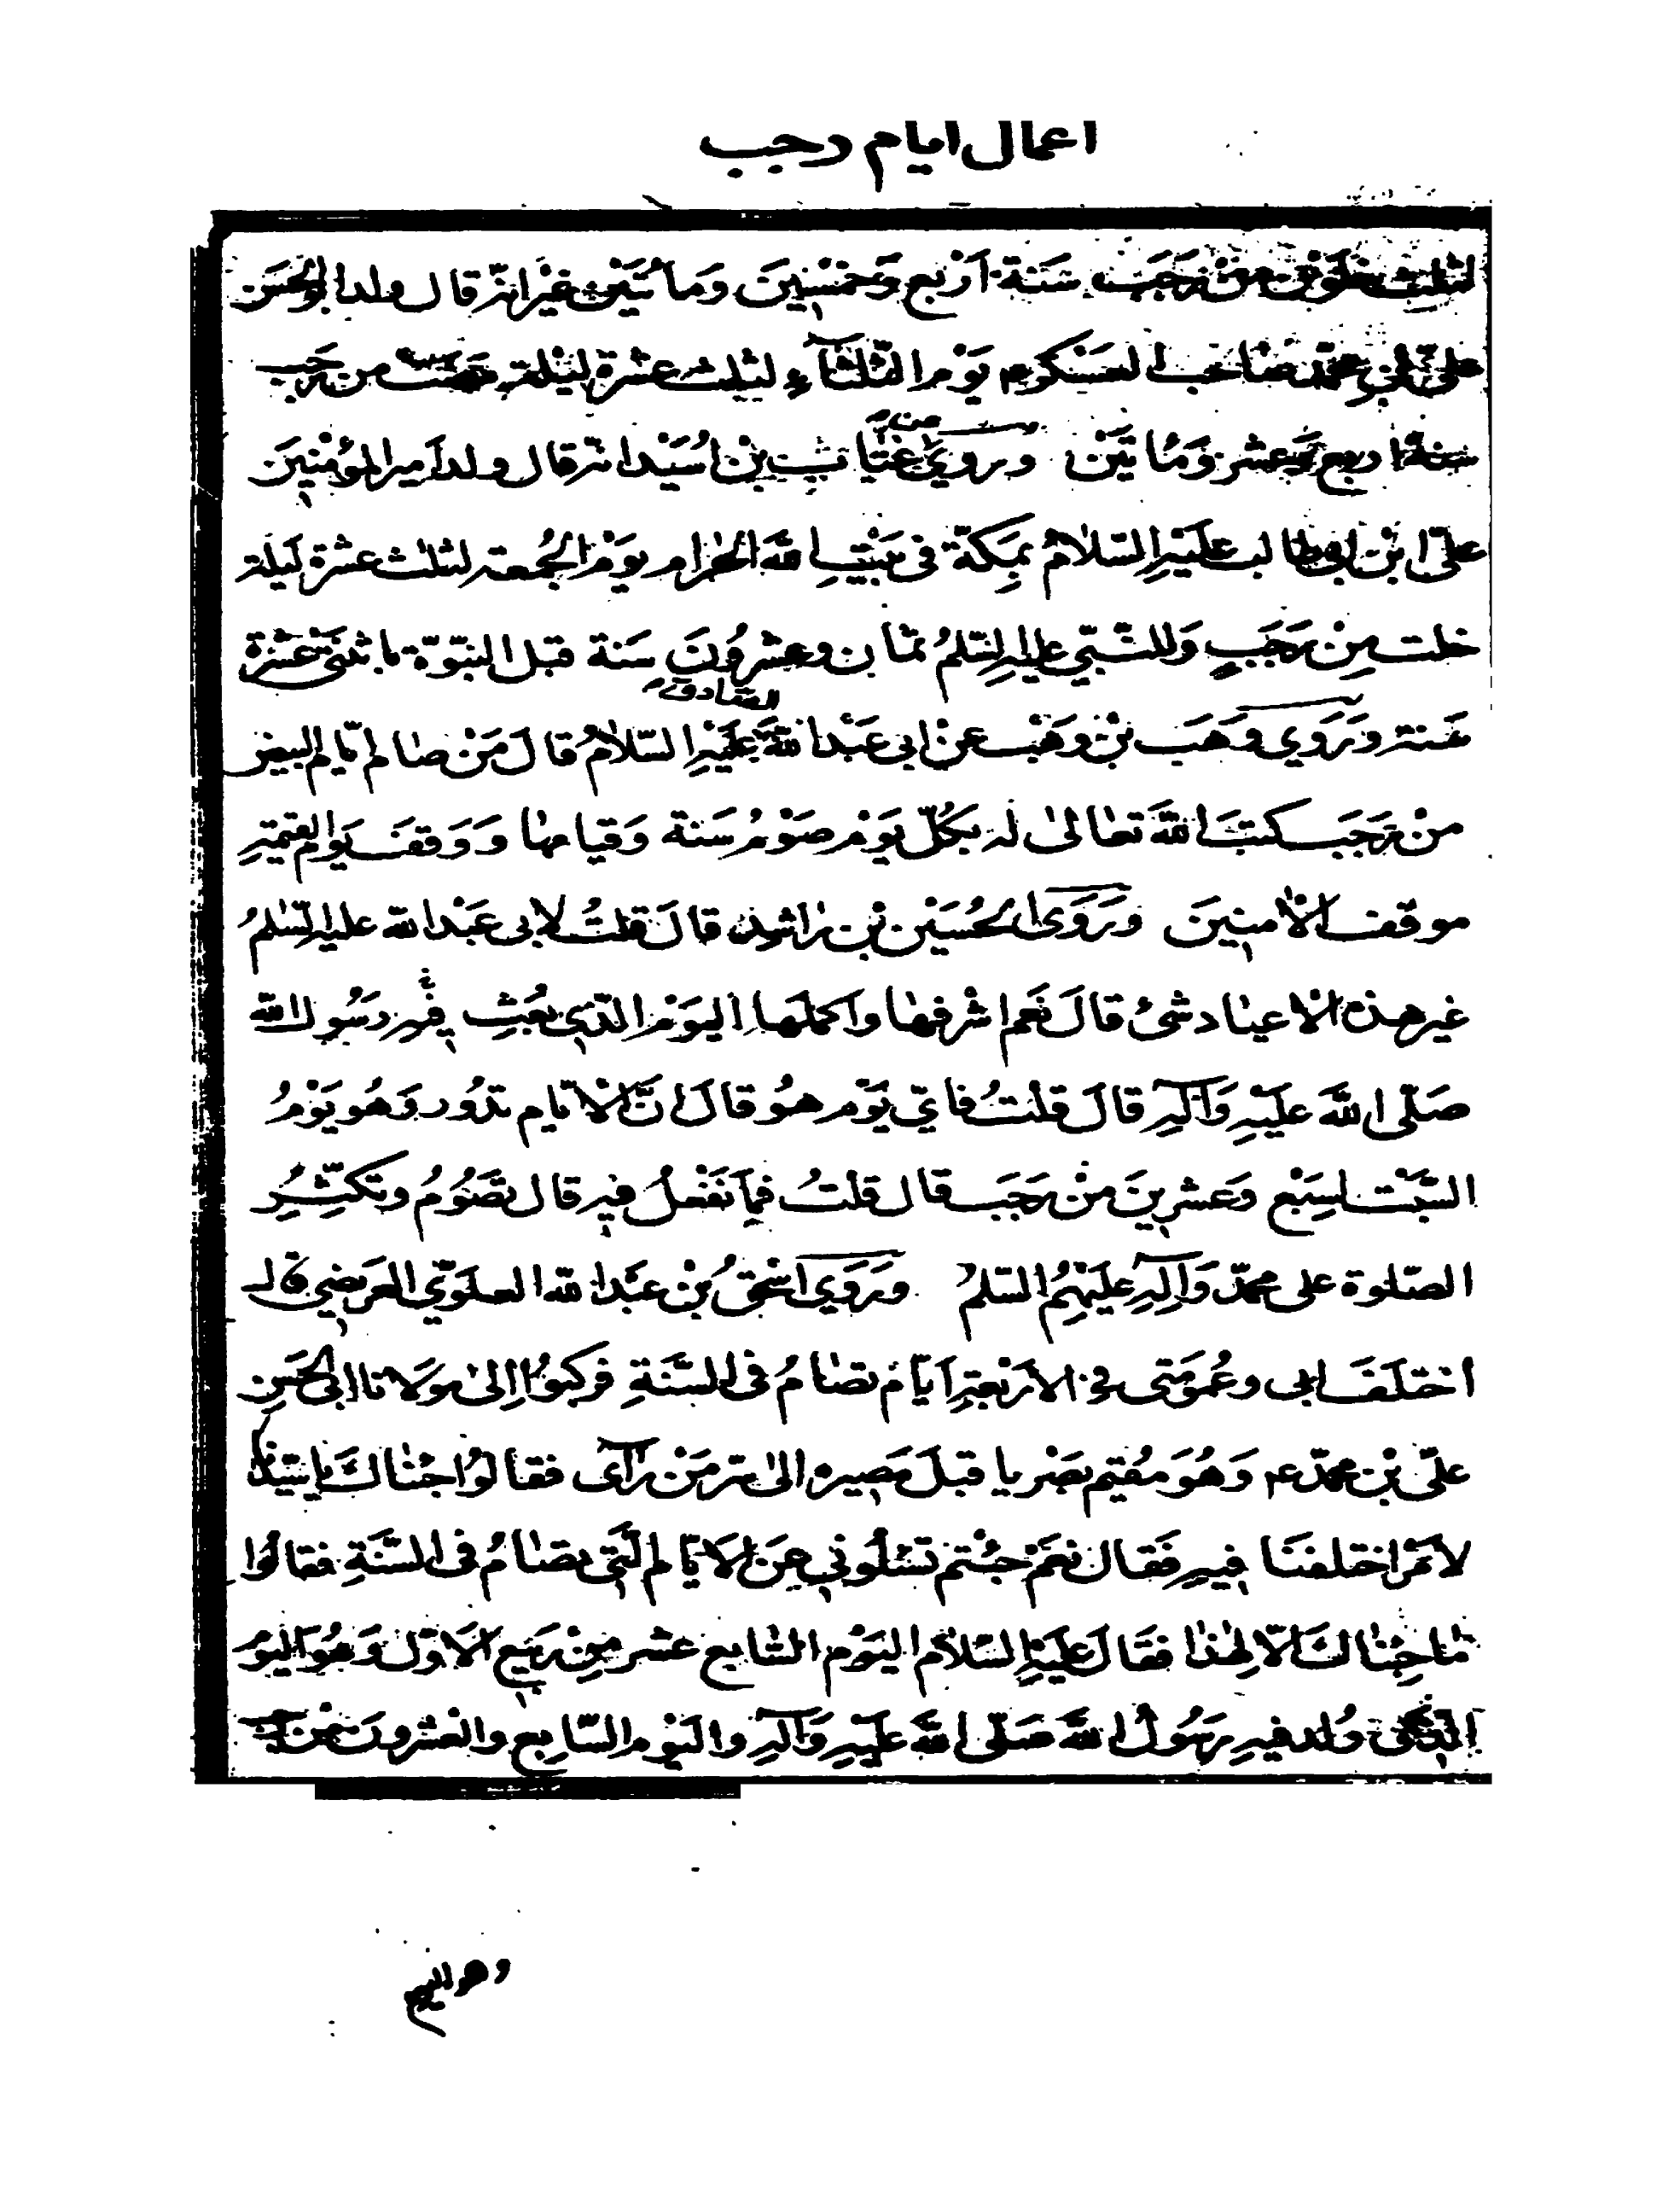 اعمال ايام رجب
لثلث خلون من رجب سنة اربع وخمسين ومأتين غير انه قال ولد ابو الحسن
على بن محمد صاحب العسكر ع يوم الثلثاء لثلث عشرة ليلة مضت من رجب
سنة اربع وعشر ومأتين وروى عن عتاب بن اسيد انه قال ولد امير المؤمنين
علىّ ابن ابى طالب عليه السّلامُ بمكّة فى بيت الله الحرام يوم الجُمعة لثلث عشرة ليلة
خلت من رجب وللنّبىّ عليه السّلمُ ثمان وعشرون سنة قبل النبوّة باثنتى عشرة
سنة وروى وهب بن وهب عن ابى عبد الله الصادق عليه السّلامُ قال من صام ايّام البيض
من رجب كتب الله تعالى له بكلّ يوم صوم سنة وقيامها ووقف يوم القيمة
موقف الامنين وروى الحسين بن راشد قال قلتُ لابى عبد الله عليه السّلمُ
غير هذه الاعياد شئ قال نعم اشرفها واكملها اليوم الذى بعث فيه رسول الله
صلّى الله عليه وآله قال قلتُ فاىّ يوم هو قال انّ الايّام تدُور وهو يومُ
السّبت لسبع وعشرين من رجب قال قلتُ فما نفعلُ فيه قال تصُومُ وتكثّر
الصّلوة على محمّد وآله عليهمُ السّلمُ وروى اسحقُ بن عبد الله العلوىّ العريضى قال
اختلف ابى وعُمومتى فى الاربعة ايّام تصام فى السّنة فركبوا الى مولانا ابى الحسن
علىّ بن محمّد ع وهو مقيم بصريا قبل مصيره الى سرّ من رآى فقالوا جئناك يا سيّدنا
لامر اختلفنا فيه فقال نعم جئتم تسئلونى عن الايّام الّتى تصامُ فى السّنة فقالوا
ما جئناك الّا لهذا فقال عليه السّلام اليوم السّابع عشر من ربيع الاوّل وهو اليوم
الذى ولد فيه رسول الله صلّى الله عليه وآله واليوم السّابع والعشرون من رجب
وهو اليوم